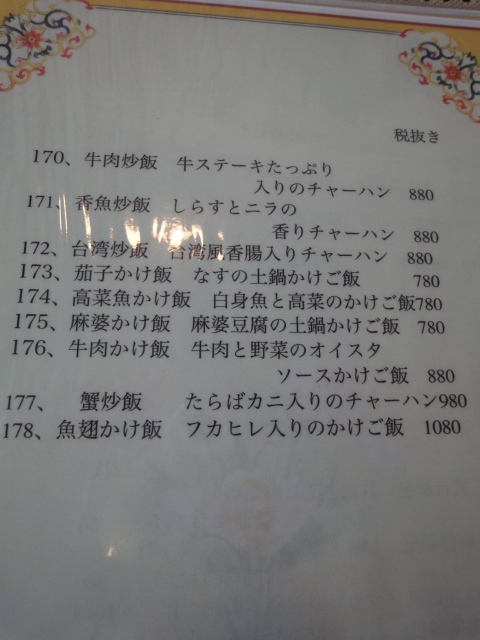 税抜き
170、牛肉炒飯　牛ステーキたっぷり
入りのチャーハン　880
171、香魚炒飯　しらすとニラの
香りチャーハン　880
172、台湾炒飯　台湾風香腸入りチャーハン　880
173、茄子かけ飯　なすの土鍋かけご飯　780
174、高菜魚かけ飯　白身魚と高菜のかけご飯780
175、麻婆かけ飯　麻婆豆腐の土鍋かけご飯　780
176、牛肉かけ飯　牛肉と野菜のオイスタ
ソースかけご飯　880
177、　蟹炒飯　　たらばカニ入りのチャーハン980
178、魚翅かけ飯　フカヒレ入りのかけご飯　1080